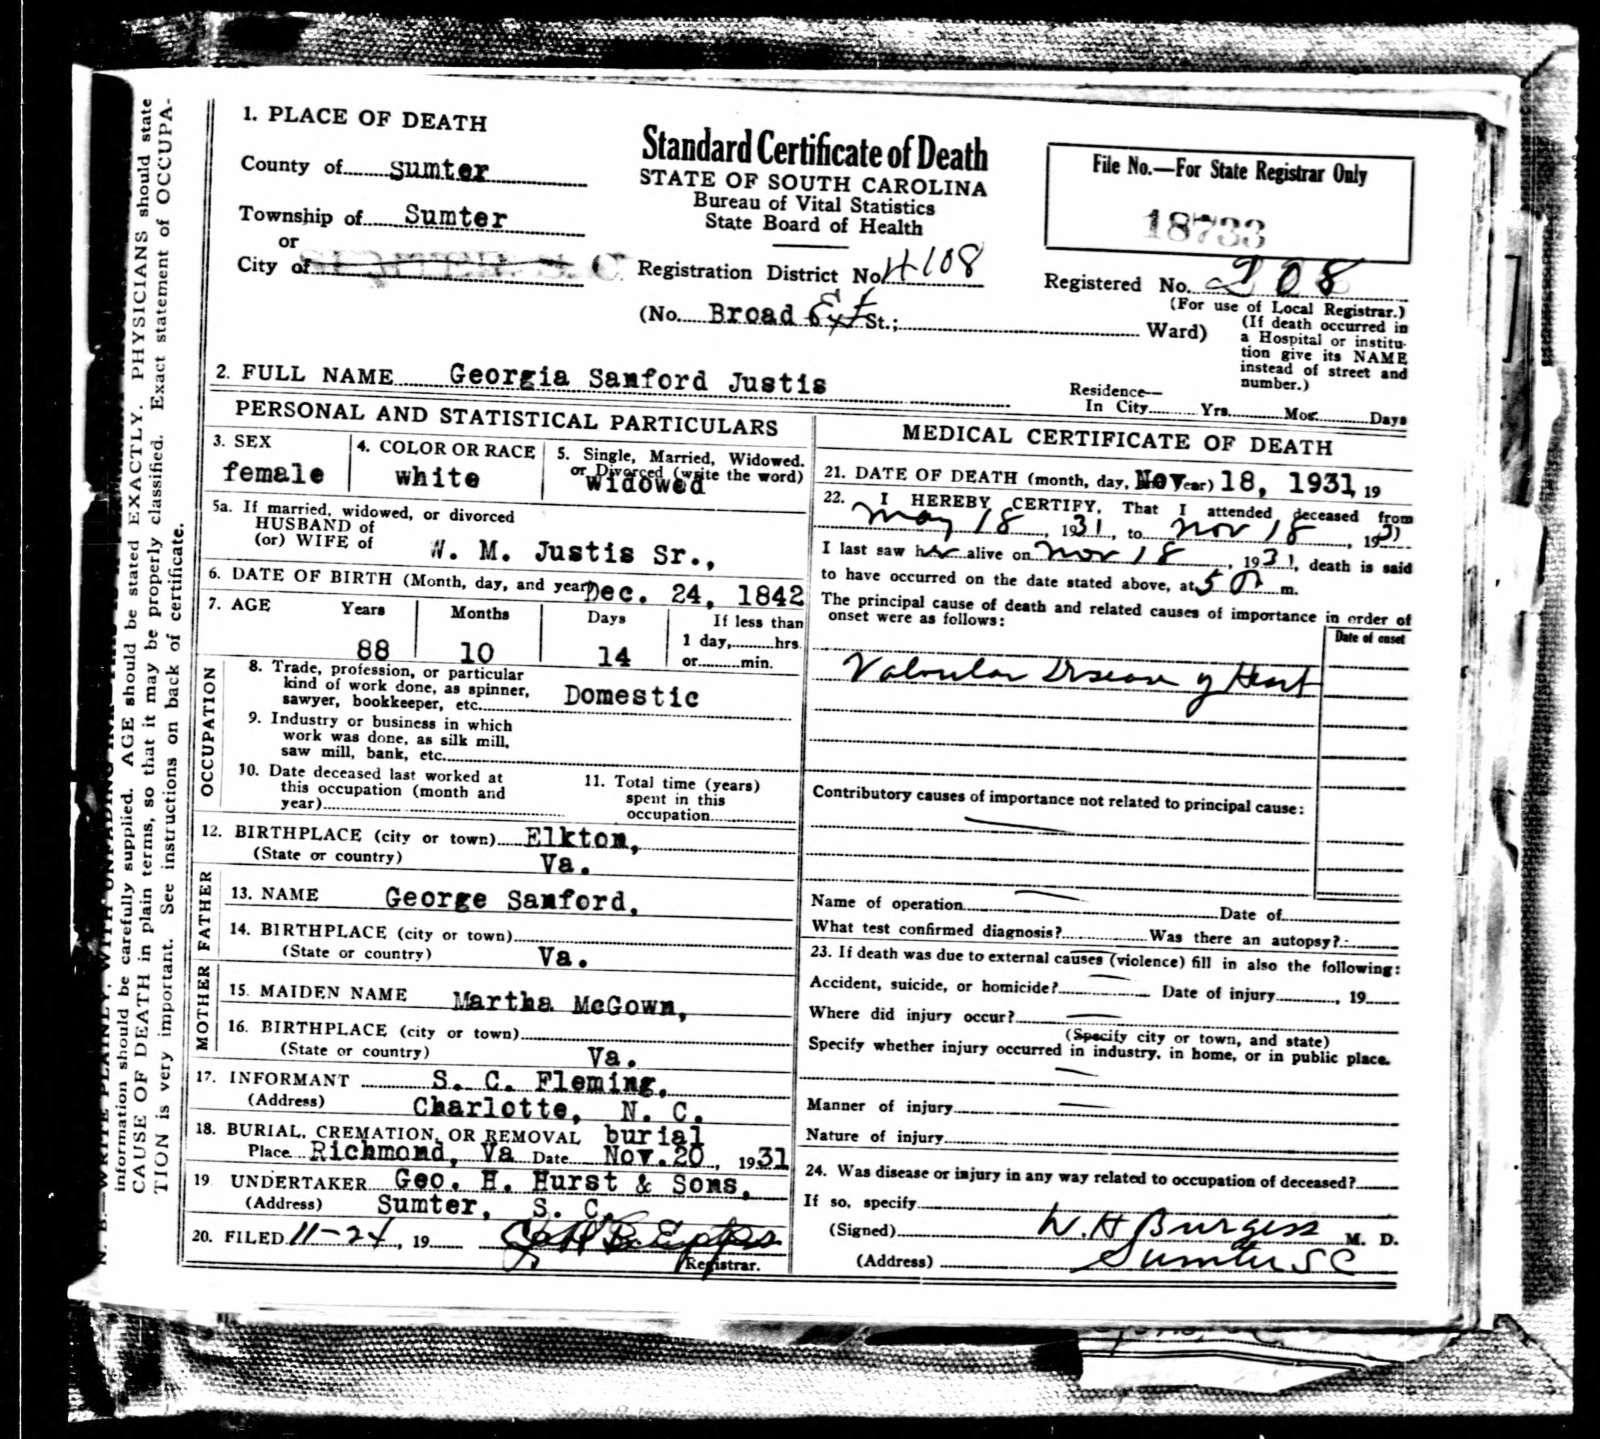 1. PLACE OF DEATH
County of Sumter
Township of Sumter
or
City of
Standard Certificate of Death
STATE OF SOUTH CAROLINA
Bureau of Vital Statistics
State Board of Health
File No.—For State Registrar Only
18733
Registration District No. 4108
Registered No. 208
(For use of Local Registrar.)
(No. Broad Ext St.; Ward)
(If death occurred in
a Hospital or institu-
tion give its NAME
instead of street and
number.)
2. FULL NAME Georgia Sanford Justis
Residence—
In City Yrs. Mos. Days
PERSONAL AND STATISTICAL PARTICULARS
3. SEX
female
4. COLOR OR RACE
white
5. Single, Married, Widowed.
or Divorced (write the word)
Widowed
5a. If married, widowed, or divorced
HUSBAND of
(or) WIFE of W. M. Justis Sr.,
6. DATE OF BIRTH (Month, day, and year) Dec. 24, 1842
7. AGE Years Months Days If less than
1 day, hrs.
88 10 14 or min.
OCCUPATION
8. Trade, profession, or particular
kind of work done, as spinner,
sawyer, bookkeeper, etc. Domestic
9. Industry or business in which
work was done, as silk mill,
saw mill, bank, etc.
10. Date deceased last worked at
this occupation (month and
year)
11. Total time (years)
spent in this
occupation
12. BIRTHPLACE (city or town) Elkton,
(State or country) Va.
FATHER
13. NAME George Sanford,
14. BIRTHPLACE (city or town)
(State or country) Va.
MOTHER
15. MAIDEN NAME Martha McGown,
16. BIRTHPLACE (city or town)
(State or country) Va.
17. INFORMANT S. C. Fleming,
(Address) Charlotte, N. C.
18. BURIAL, CREMATION, OR REMOVAL burial
Place Richmond, Va Date Nov. 20, 1931
19. UNDERTAKER Geo. H. Hurst & Sons,
(Address) Sumter, S. C.
20. FILED 11-24, 19
Registrar.
MEDICAL CERTIFICATE OF DEATH
21. DATE OF DEATH (month, day, and year) Nov 18, 1931, 19
22. I HEREBY CERTIFY, That I attended deceased from
May 18, 1931, to Nov 18, 1931
I last saw her alive on Nov 18, 1931, death is said
to have occurred on the date stated above, at 5 m.
The principal cause of death and related causes of importance in order of
onset were as follows:
Date of onset
Valvular Disease of Heart
Contributory causes of importance not related to principal cause:
Name of operation Date of
What test confirmed diagnosis? Was there an autopsy?
23. If death was due to external causes (violence) fill in also the following:
Accident, suicide, or homicide? Date of injury , 19
Where did injury occur?
(Specify city or town, and state)
Specify whether injury occurred in industry, in home, or in public place.
Manner of injury
Nature of injury
24. Was disease or injury in any way related to occupation of deceased?
If so, specify
(Signed) W. H Burgess M. D.
(Address) Sumter SC
N. B.—WRITE PLAINLY, WITH UNFADING INK
information should be carefully supplied. AGE should be stated EXACTLY. PHYSICIANS should state
CAUSE OF DEATH in plain terms, so that it may be properly classified. Exact statement of OCCUPA-
TION is very important. See instructions on back of certificate.